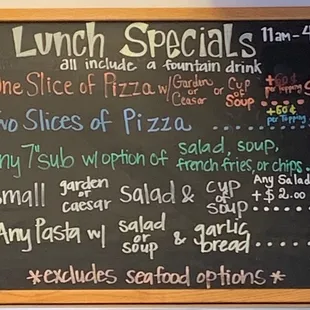 Lunch Specials 11am-4
all include a fountain drink
One Slice of Pizza w/ Garden or Caesar or Cup of Soup +60¢ per Topping
Two Slices of Pizza +60¢ per Topping
ny 7" sub w/ option of salad, soup, french fries, or chips
small garden or caesar Salad & cup of soup Any Salad + $2.00
Any Pasta w/ salad or soup & garlic bread
*excludes seafood options*